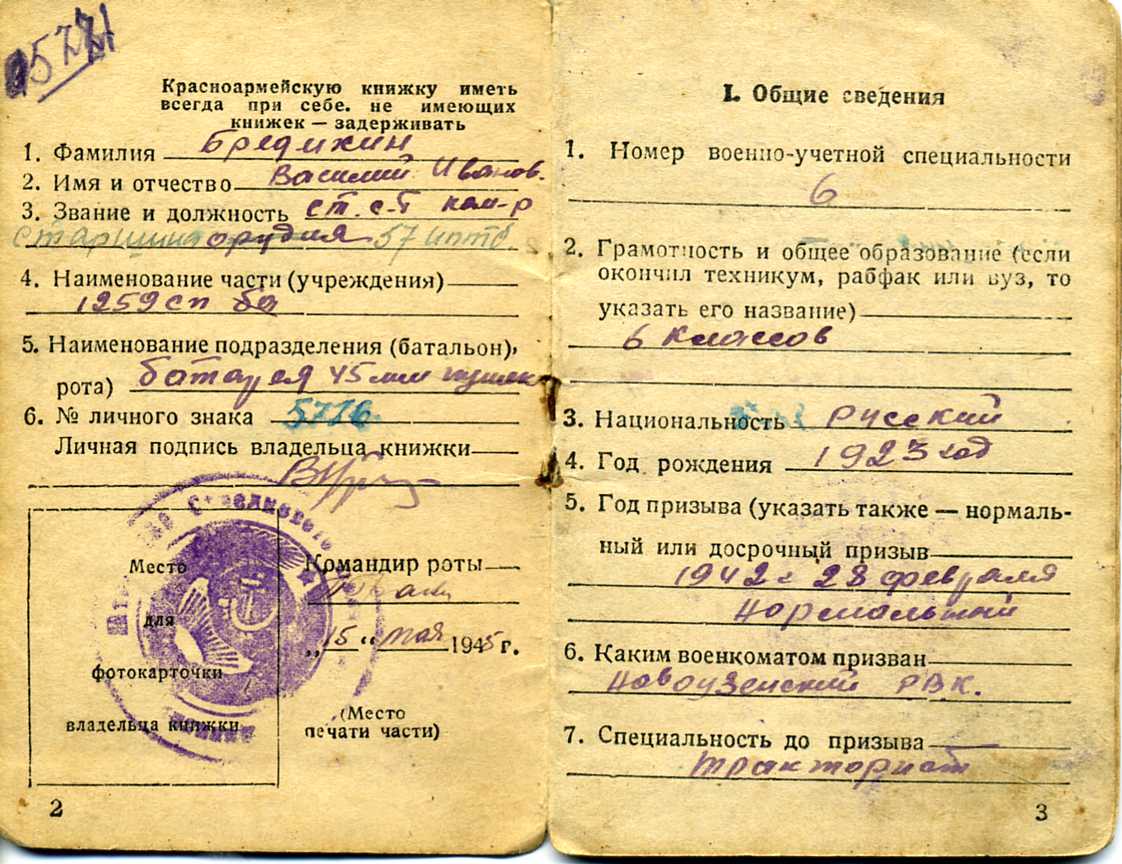 Красноармейскую книжку иметь
всегда при себе. не имеющих
книжек — задерживать
1. Фамилия Бредихин
2. Имя и отчество Василий Иванов.
3. Звание и должность ст. с-т ком-р
старшина орудия 57 иптб
4. Наименование части (учреждения)
1259 сп
5. Наименование подразделения (батальон),
рота) батарея 45 мм пушек
6. № личного знака
Личная подпись владельца книжки
Место
для
фотокарточки
владельца книжки
Командир роты
„15“ мая 1945 г.
(Место
печати части)
2
I. Общие сведения
1. Номер военно-учетной специальности
6
2. Грамотность и общее образование (если
окончил техникум, рабфак или вуз, то
указать его название)
6 классов
3. Национальность Русский
4. Год рождения 1923 год
5. Год призыва (указать также — нормаль-
ный или досрочный призыв
1942 г 28 февраля
Нормальный
6. Каким военкоматом призван
Новоузенский РВК.
7. Специальность до призыва
тракторист
3